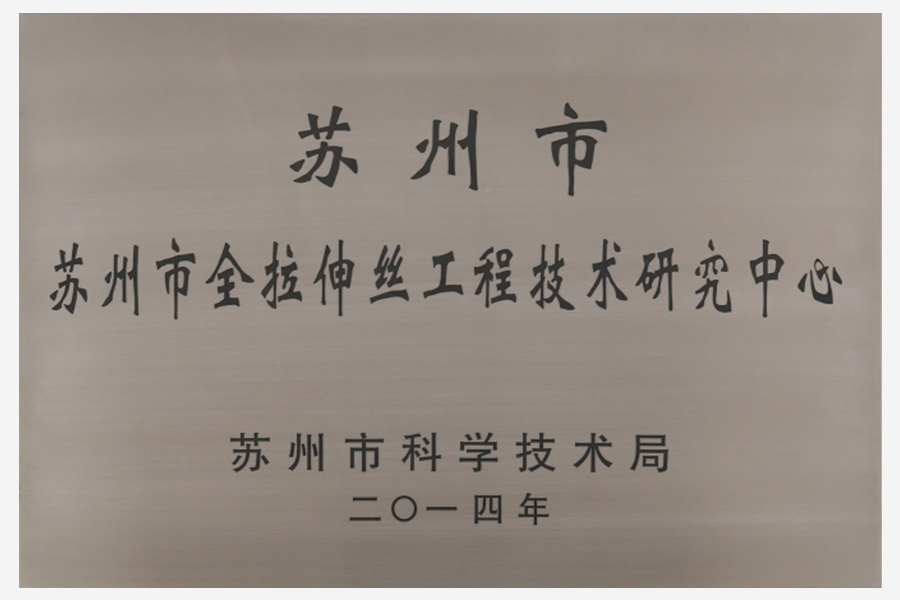 苏州市
苏州市全拉伸丝工程技术研究中心
苏州市科学技术局
二〇一四年